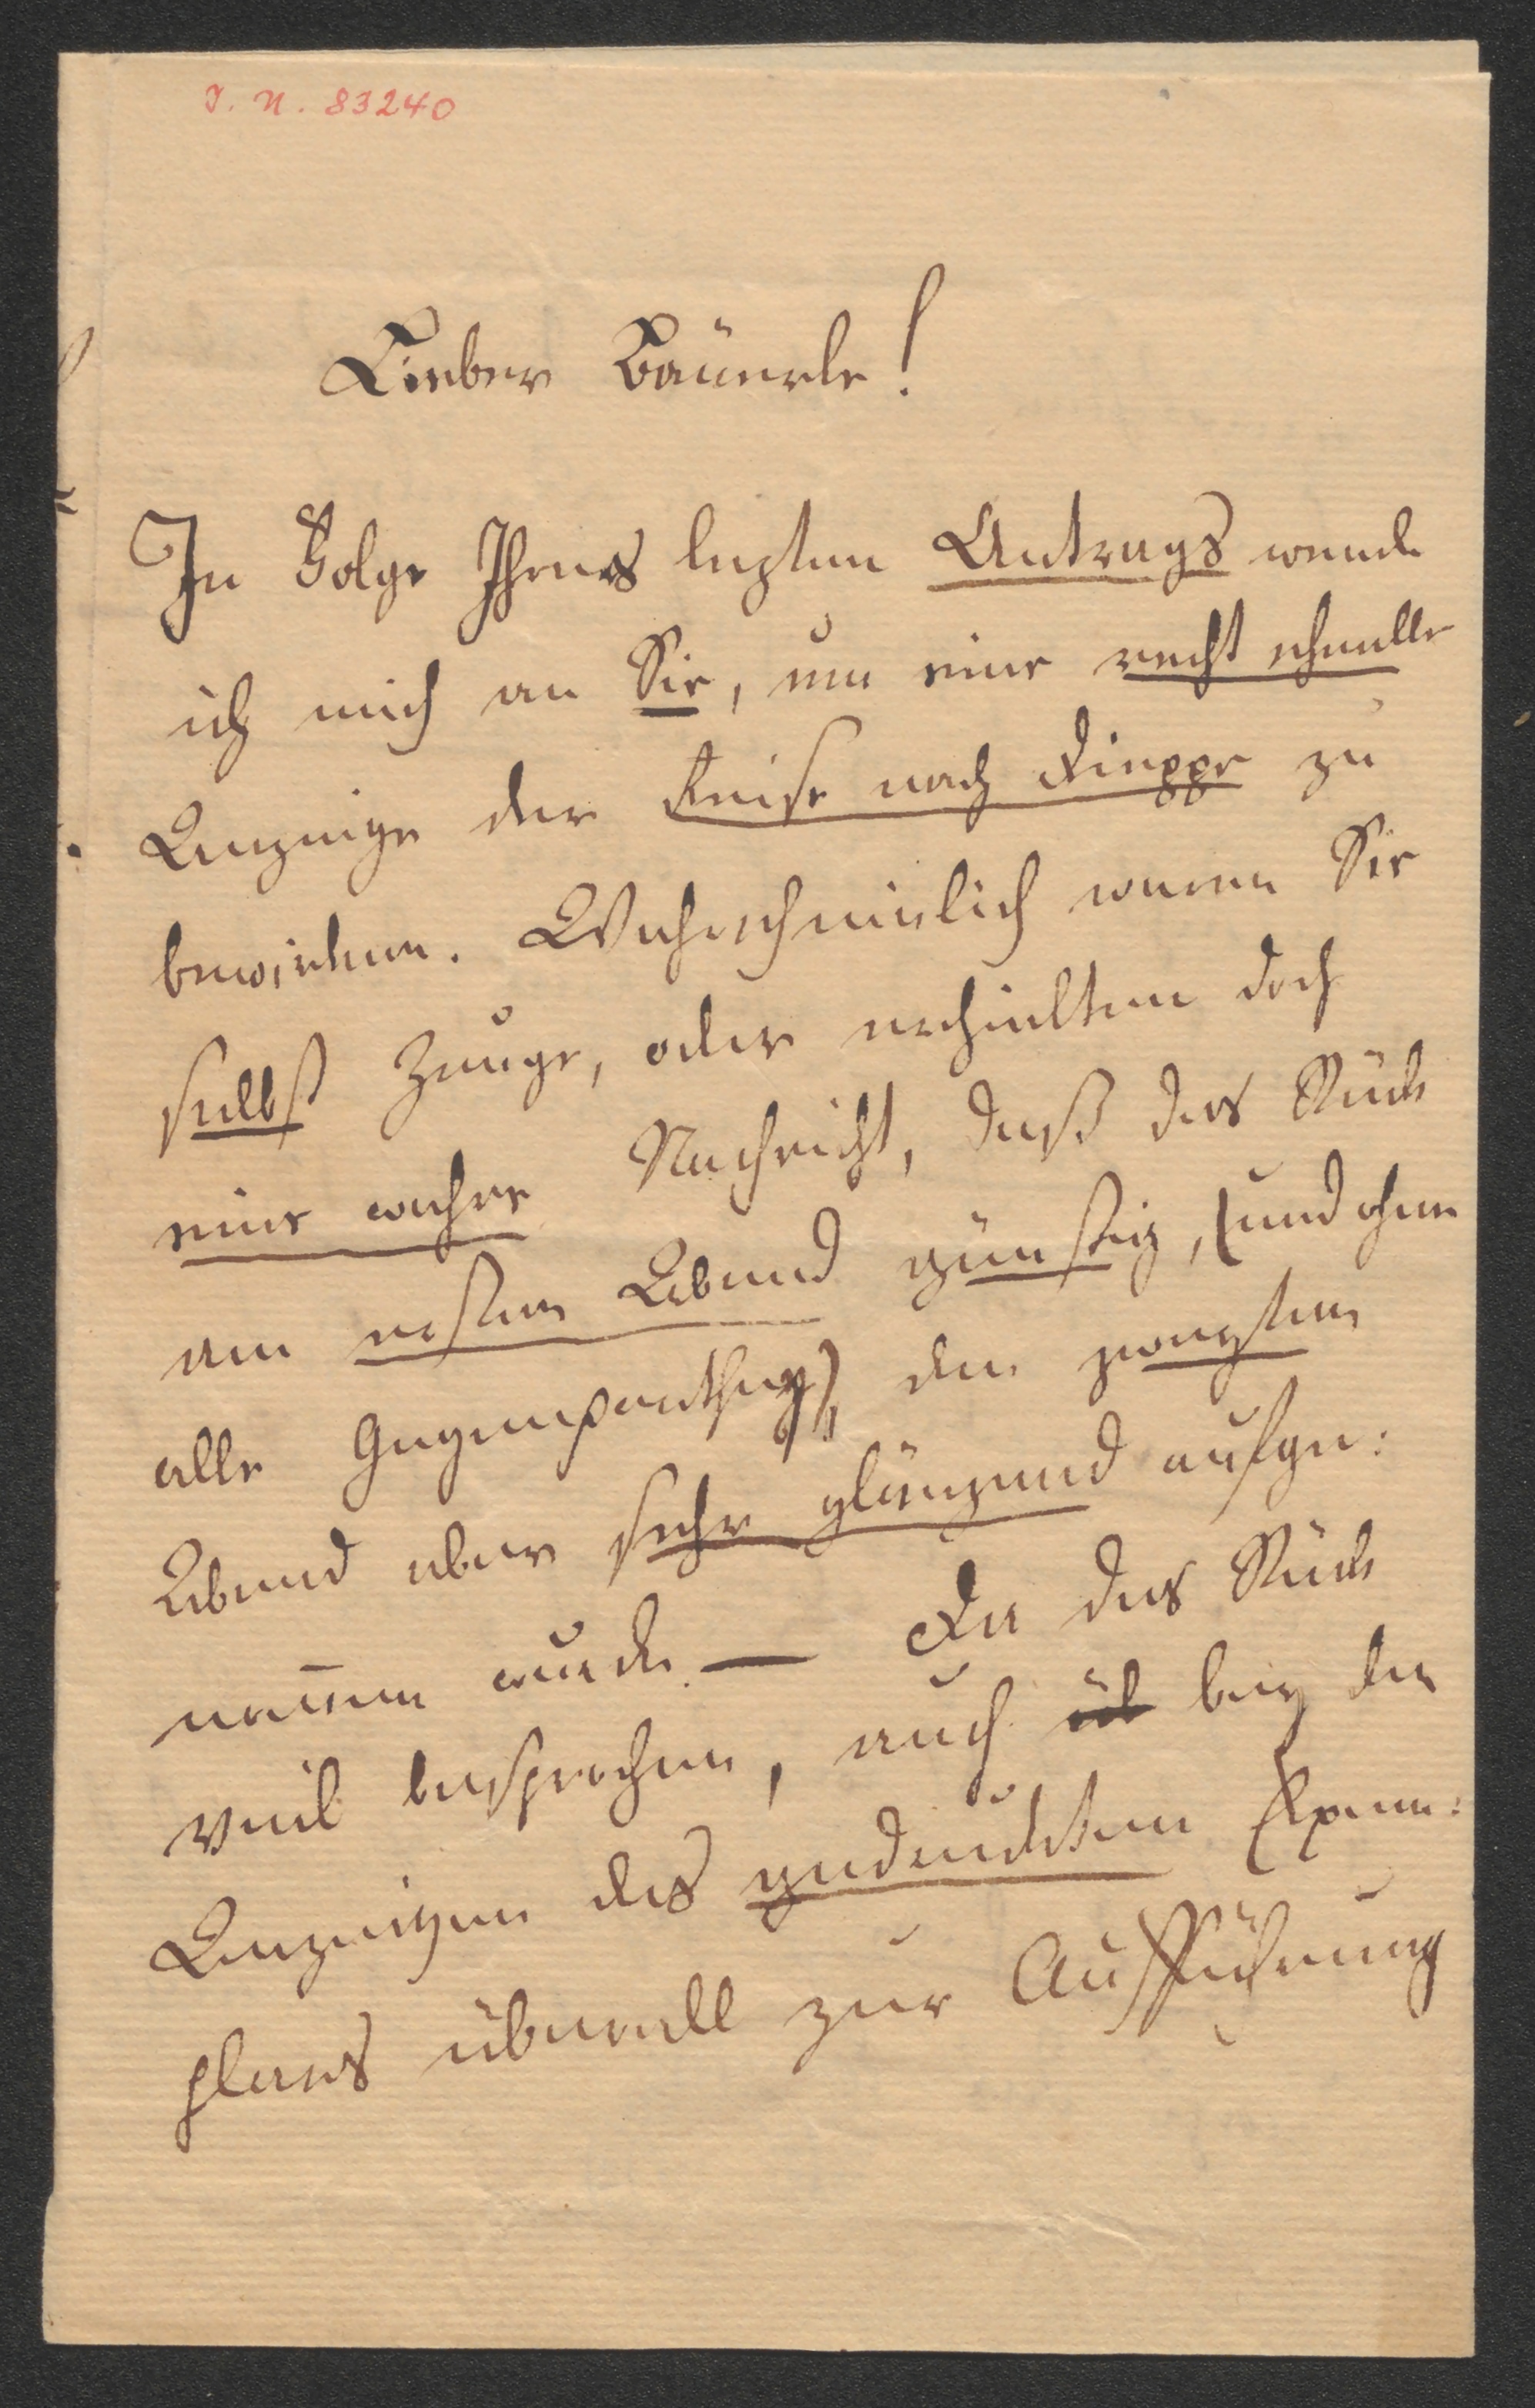 J. N. 83240
Lieber Bäuerle!
In Folge Ihres lezten Antrags wende
ich mich an Sie, um eine recht schnelle
Anzeige der Reise nach Dieppe zu
bewirken. Wahrscheinlich waren Sie
selbst Zeuge, oder erhielten doch
eine wahre Nachricht, daß das Stück
am ersten Abend günstig, (und ohne
alle Gegenparthey) den zweyten
Abend aber sehr glänzend aufge:
nom̅en wurde. — Da das Stück
viel besprochen, auch üb bey den
Anzeigen des gedruckten Exem:
plares überall zur Aufführung